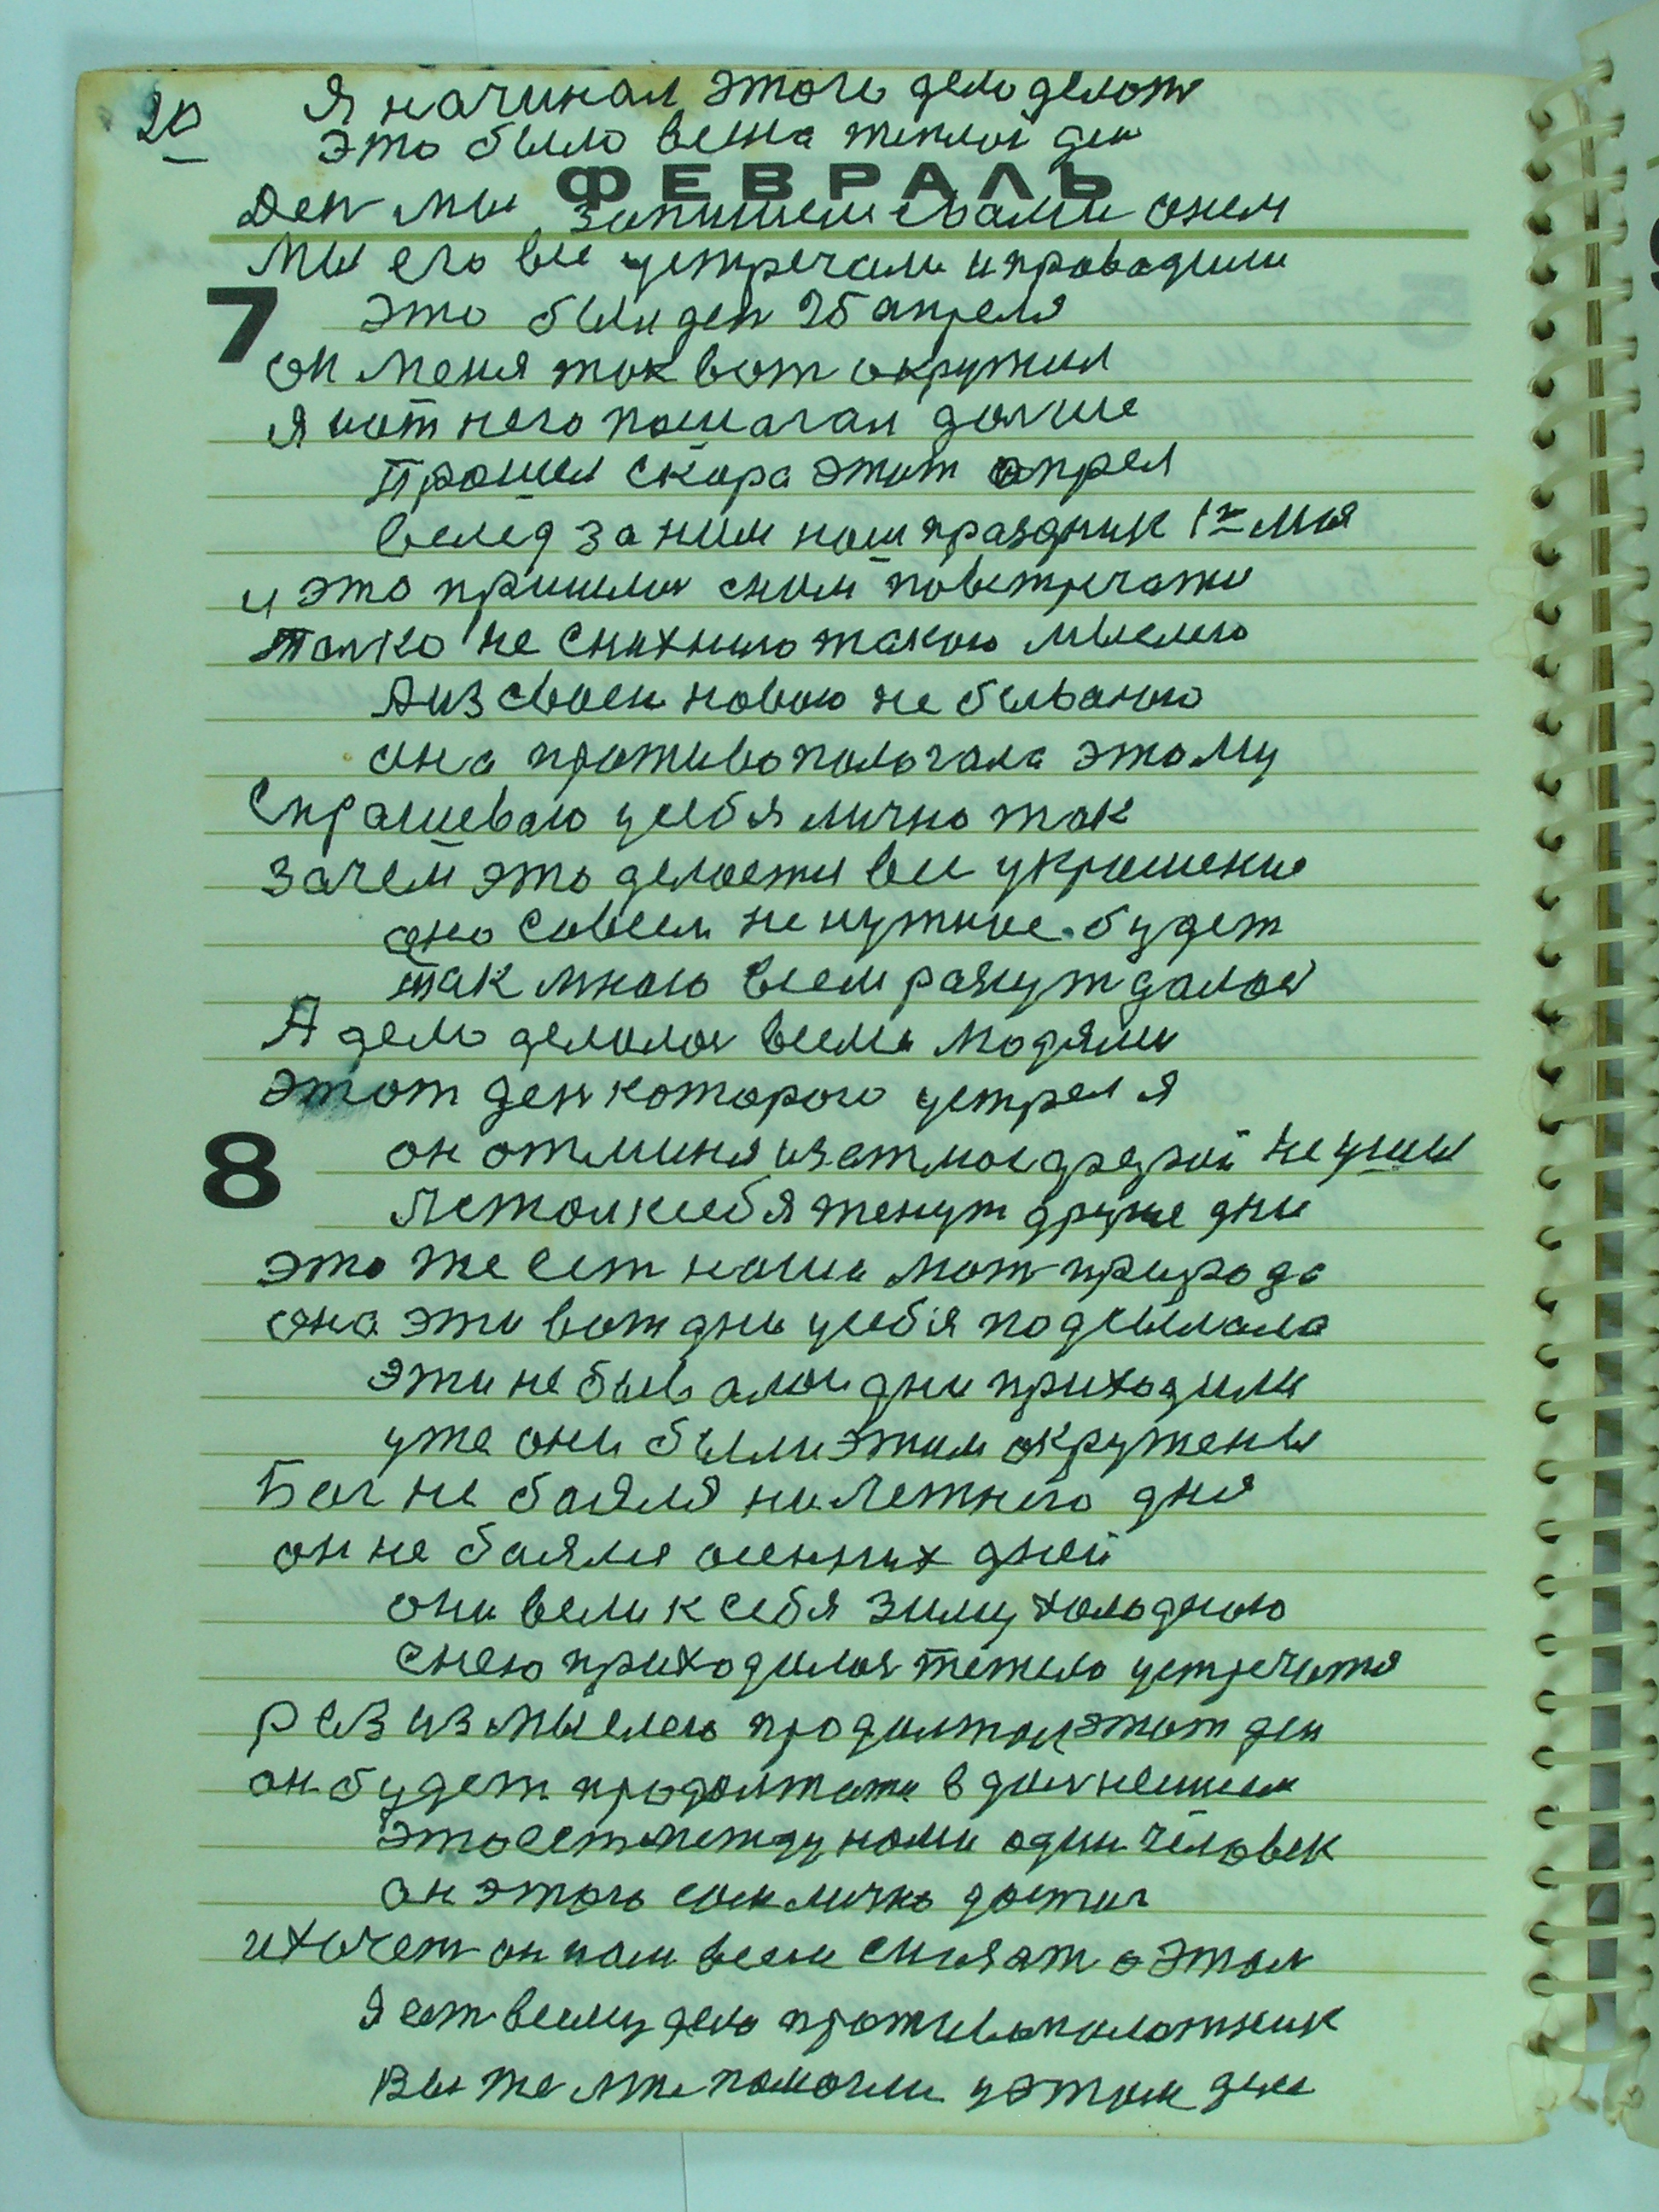 20 Я начинал этого дело делат
это было весна теплой ден
ФЕВРАЛЬ
Ден мы запишем свами онем
мы его все устречали ипроводили
7 Это были ден 25 апреля
он меня так вот окружил
я иот него помагал долше
Прошел скора этот апрел
вслед за ним наш праздник 1го мая
и это пришлос сним повстречатся
толко не снихнию такою мыслею
Аиз своей новою не бывалою
она противополагала этому
Спрашеваю усебя лично так
зачем это делается все украшение
оно совсем не нужное будет
так мною всем разсуждалос
А дело делалос всеми людями
этот ден которого устрел я
8 он отменя ушел другой не ушел
Летом ксебя тенут други дни
это же ест наша мат природа
она эти вот дни усебя подсылала
эти не бывалаи дни приходили
уже они были этим окружены
Бог не боялся ни летнего дня
он не боялся осенних дней
они вели к себя зиму холодною
снею приходилос тежело устречатся
рез из мыслею продолжал этот ден
он будет продолжатся в далнейшем
это ест между нами один человек
он этого сам лично достиг
ихочет он нам всем сказат о этом
Я ест всему делу противоположник
Вы же мне помогли уэтом деле